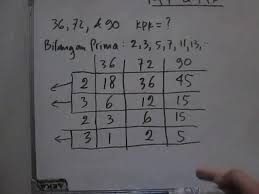 36, 72, & 90 KPK = ?
Bilangan Prima : 2, 3, 5, 7, 11, 13, ..
36 72 90
2 18 36 45
3 6 12 15
2 3 6 15
3 1 2 5